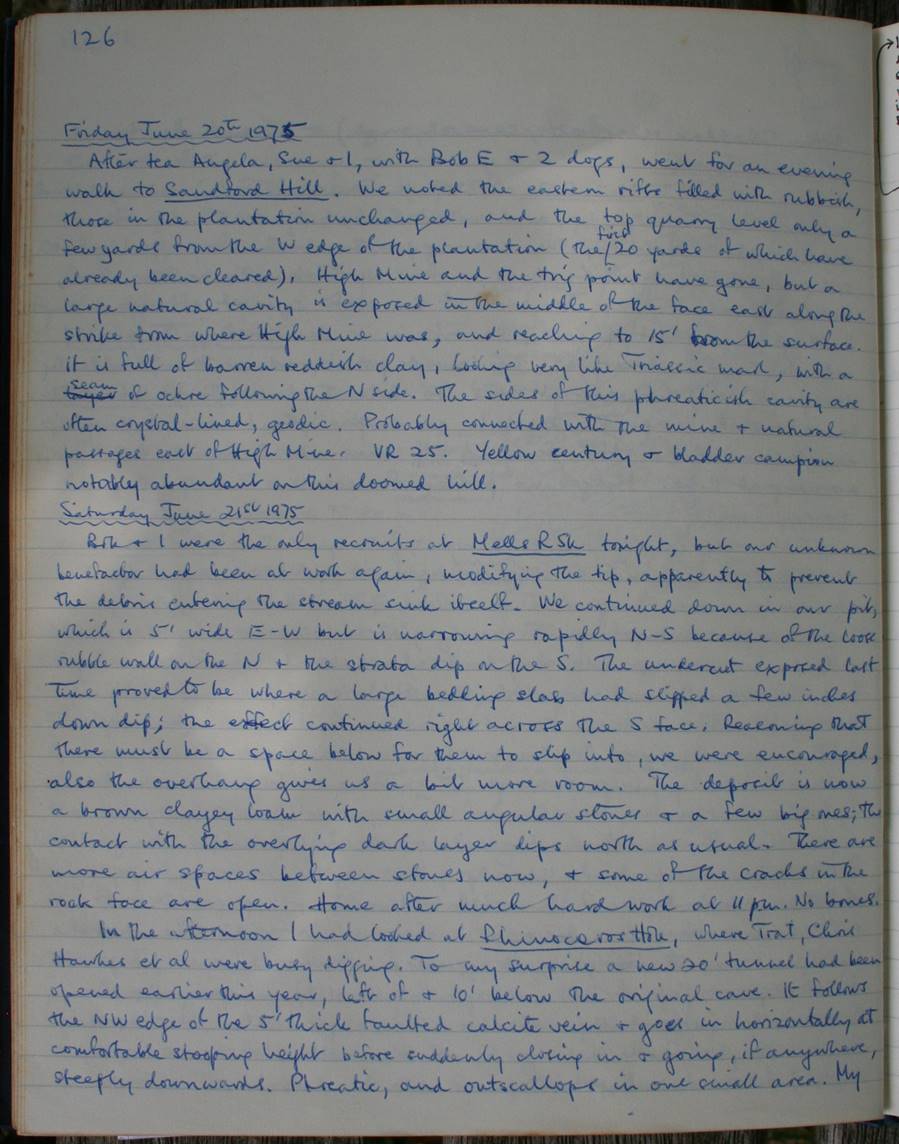 126
Friday June 20th 1975
After tea Angela, Sue + I, with Bob E + 2 dogs, went for an evening
walk to Sandford Hill. We noted the eastern rifts filled with rubbish,
those in the plantation unchanged, and the top quarry level only a
few yards from the W edge of the plantation (the first 20 yards of which have
already been cleared). High Mine and the trig point have gone, but a
large natural cavity is exposed in the middle of the face east along the
strike from where High Mine was, and reaching to 15' from the surface.
it is full of barren reddish clay, looking very like Triassic marl, with a
seam of ochre following the N side. The sides of this phreaticish cavity are
often crystal-lined, geodic. Probably connected with the mine + natural
passages east of High Mine. VR 25. Yellow century + bladder campion
notably abundant on this doomed hill.
Saturday June 21st 1975
Bok + I were the only recruits at Mells R Sk tonight, but our unknown
benefactor had been at work again, modifying the tip, apparently to prevent
the debris entering the stream sink itself. We continued down in our pit,
which is 5' wide E-W but is narrowing rapidly N-S because of the loose
rubble wall on the N + the strata dip on the S. The undercut exposed last
time proved to be where a large bedding slab had slipped a few inches
down dip; the effect continued right across the S face. Reasoning that
there must be a space below for them to slip into, we were encouraged,
also the overhang gives us a bit more room. The deposit is now
a brown clayey loam with small angular stones + a few big ones; the
contact with the overlying dark layer dips north as usual. There are
more air spaces between stones now, + some of the cracks in the
rock face are open. Home after much hard work at 11 pm. No bones.
In the afternoon I had looked at Rhinoceros Hole, where Trat, Chris
Hawkes et al were busy digging. To my surprise a new 20' tunnel had been
opened earlier this year, left of + 10' below the original cave. It follows
the NW edge of the 5' thick faulted calcite vein + goes in horizontally at
comfortable stooping height before suddenly closing in + going, if anywhere,
steeply downwards. Phreatic, and outscallops in one small area. My